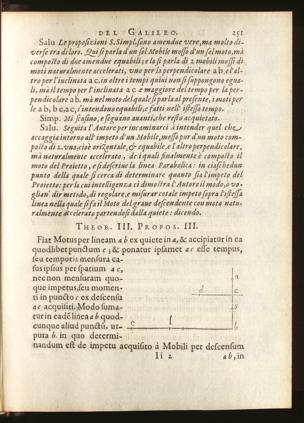 DEL GALILEO. 251
Salu. Le proposizioni S. Simpl. sono amendue vere, ma molto di-
verse tra di loro. Qui si parla d'un sol Mobile mosso d'un sol moto, mà
composto di due amendue equabili; e là si parla di 2 mobili mossi di
moti naturalmente accelerati, uno per la perpendicolare a b, e l'al-
tro per l'inclinata a c. in oltre i tempi quiui non si suppongono egua-
li, mà il tempo per l'inclinata a c è maggiore del tempo per la per-
pendicolare a b, mà nel moto del quale si parla al presente, i moti per
le a b, b c, a c, s'intendono equabili, e fatti nell'istesso tempo.
Simp. Mi scusino, e seguano auanti, che resto acquietato.
Salu. Seguita l'Autore per incaminarci à intender quel che
accaggia intorno all'impeto d'un Mobile, mosso pur d'un moto com-
posto di 2. vno, cioè orizontale, & equabile, e l'altro perpendicolare,
mà naturalmente accelerato, de i quali finalmente è composto il
moto del Proietto, e si descriue la linea Parabolica: in ciaschedun
punto della quale si cerca di determinare quanto sia l'impeto del
Proietto; per la cui intelligenza ci dimostra l'Autore il modo, ò vo-
gliam dir metodo, di regolare, e misurar cotale impeto sopra l'istessa
linea nella quale si fà il Moto del graue descendente con moto natu-
ralmente accelerato partendosi dalla quiete: dicendo.
THEOR. III. PROPOS. III.
Fiat Motus per lineam a b ex quiete in a, & accipiatur in ea
quodlibet punctum c; & ponatur ipsamet a c esse tempus,
seu temporis mensura ca-
sus ipsius per spatium a c,
nec non mensuram quo-
que impetus, seu momen-
ti in puncto c ex descensu
a c acquisiti. Modo suma-
tur in eadè linea a b quod-
cunque aliud punctū, vt-
puta b. in quo determi-
nandum est de impetu acquisito à Mobili per descensum
a
d c
s
e f b
Ii 2 ab, in